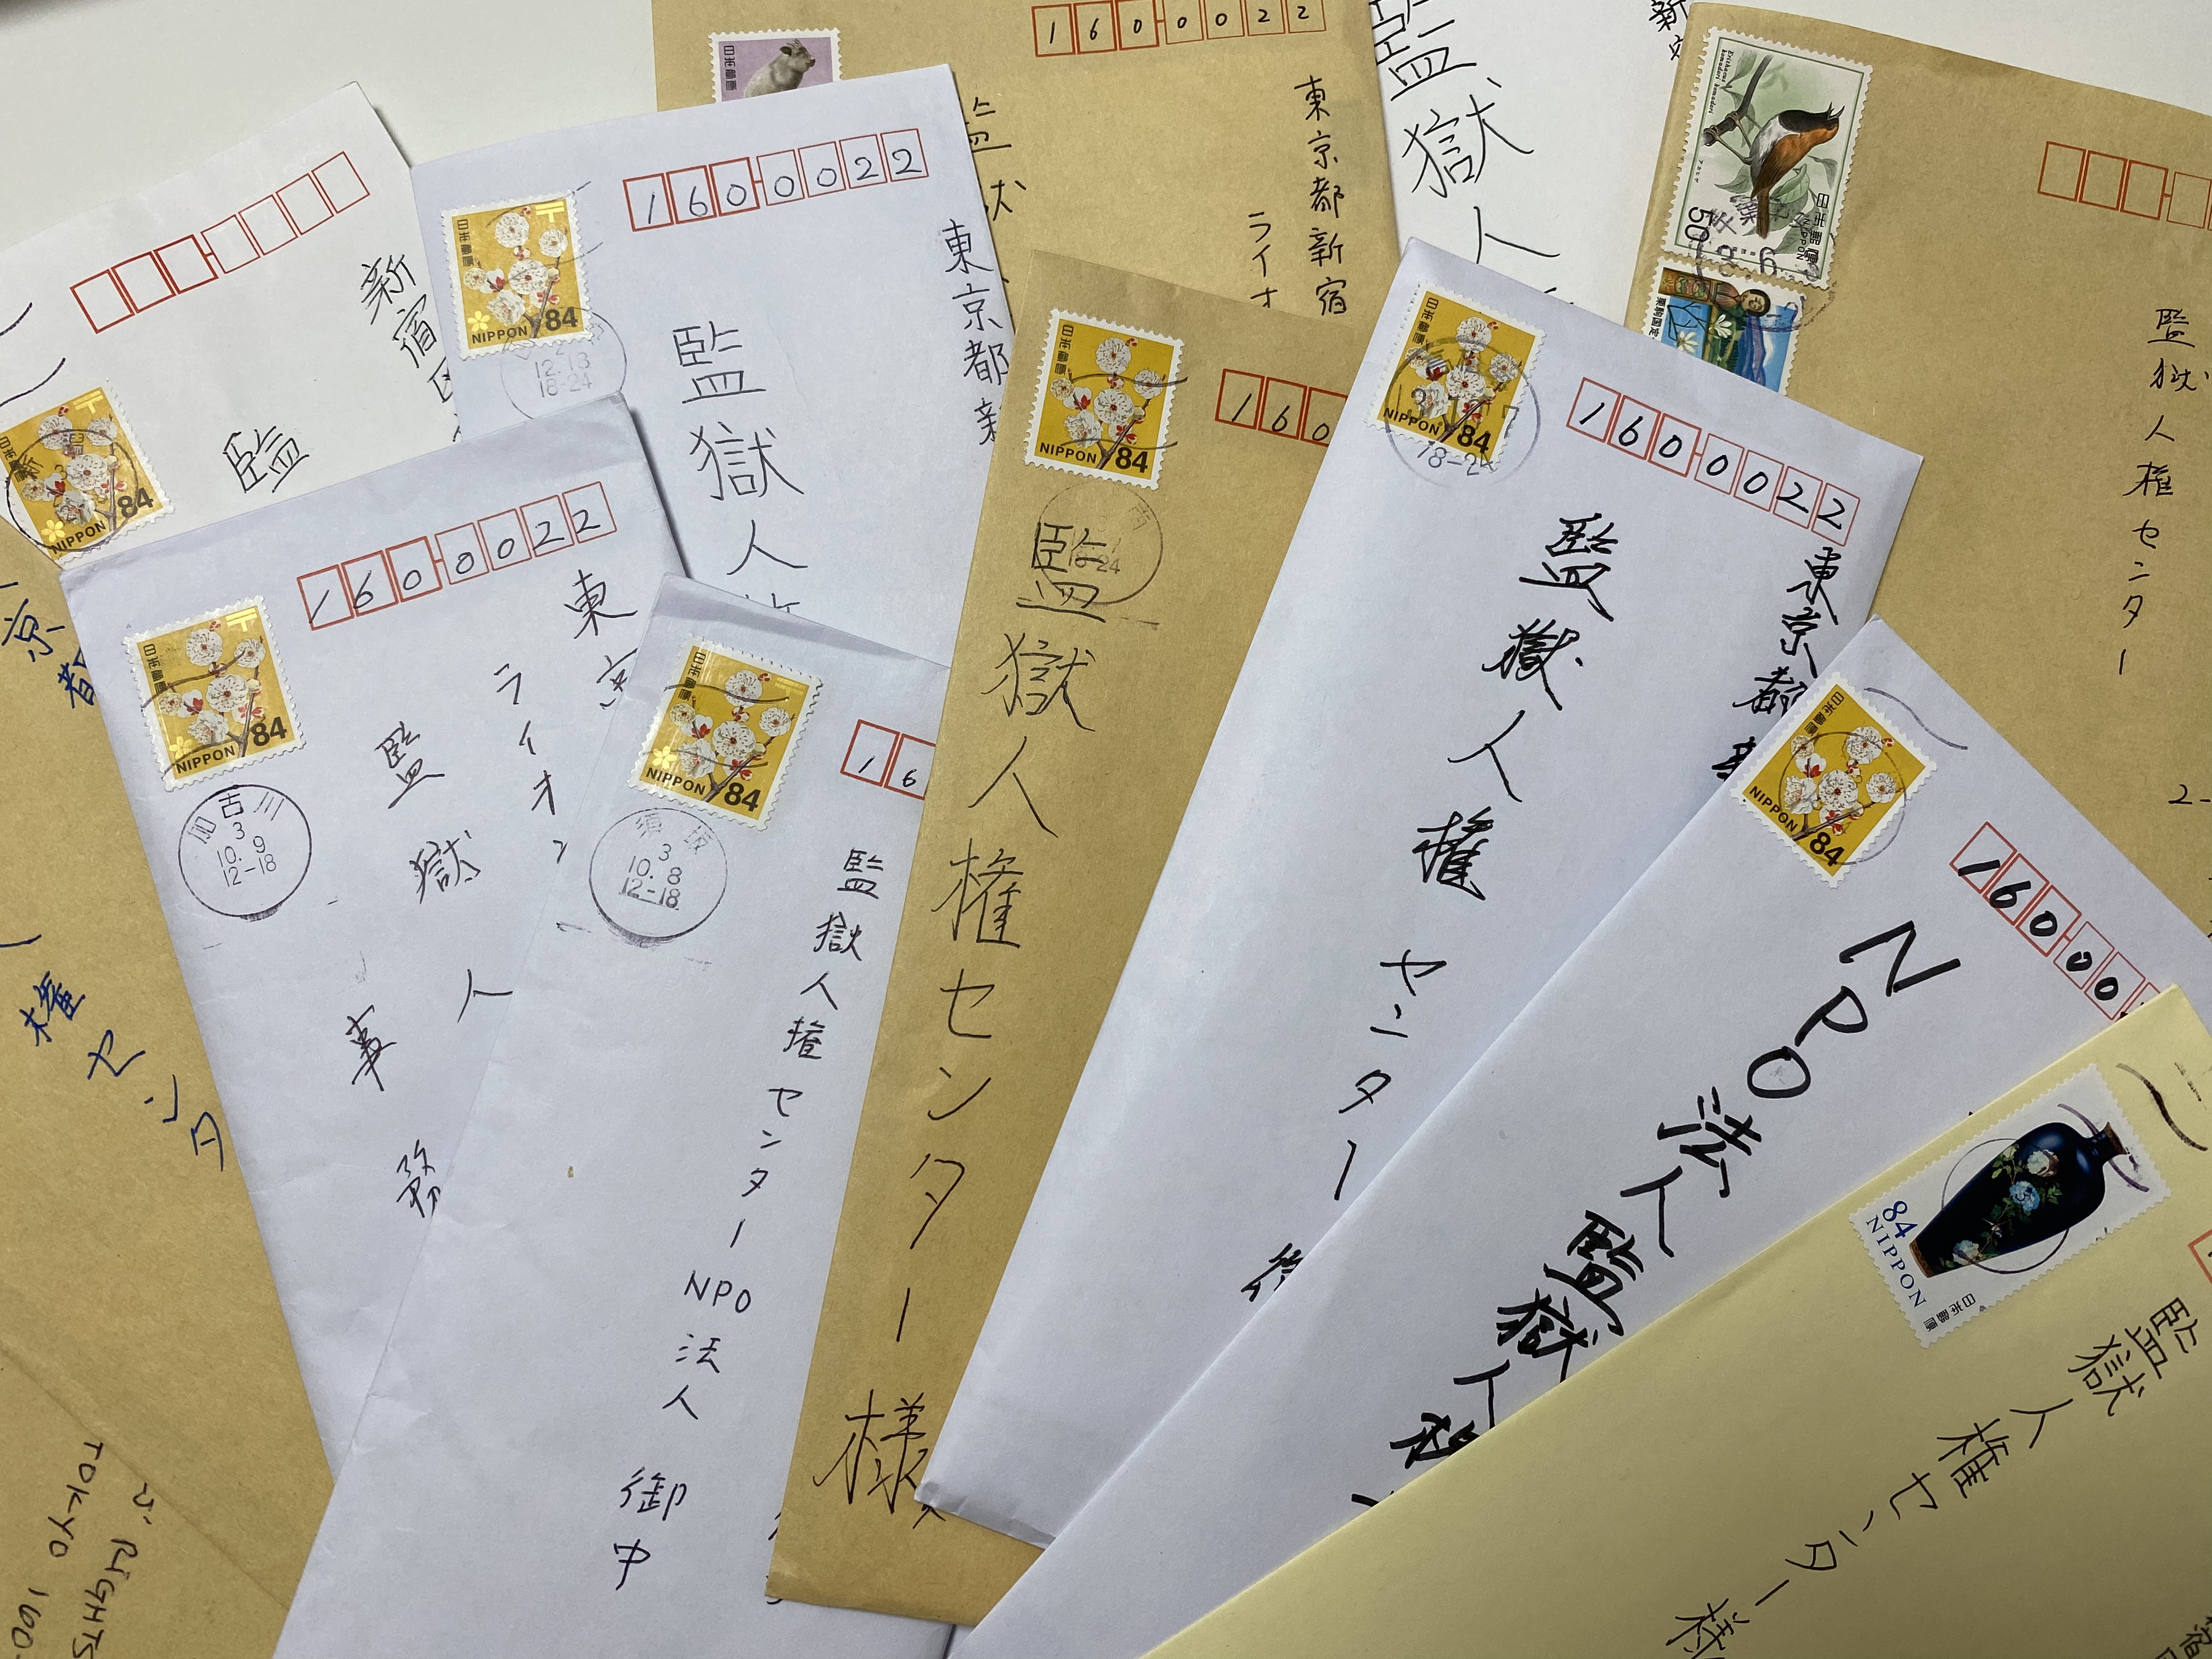 1600022
東京都新宿
ライオ
監獄人
日本郵便
50
日本郵便
NIPPON
監獄人権センター
2-
新宿区
監
日本郵便
NIPPON 84
1600022
東京都新
監獄人
日本郵便
NIPPON 84
12.13
18-24
160
監獄人権センター様
日本郵便
NIPPON 84
1600022
東京都新
監獄人権センター
日本郵便
NIPPON 84
18-24
1600022
東京
ライオ
監獄人
事務
日本郵便
NIPPON 84
加古川
3
10.9
12-18
16
監獄人権センターNPO法人 御中
日本郵便
NIPPON 84
須坂
3
10.8
12-18
16000
NPO法人監獄人権
日本郵便
NIPPON 84
監獄人権センター様
84
NIPPON
日本郵便
京都
権センタ
S' RIGHTS
TOKYO 160-